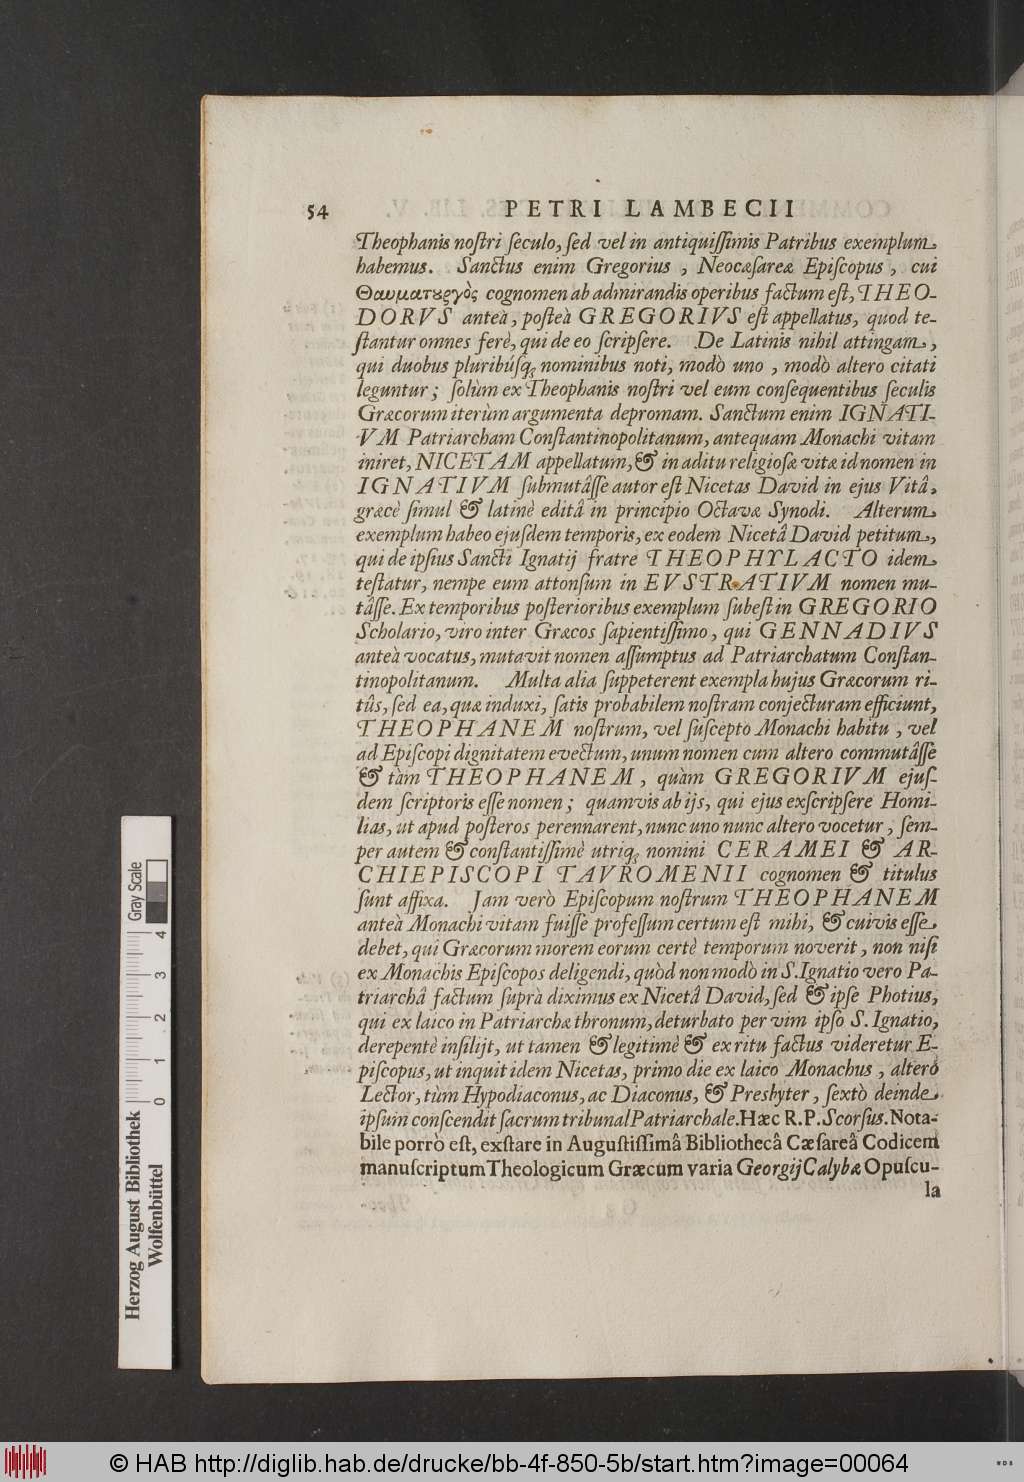 54 PETRI LAMBECII
Theophanis noſtri ſeculo, ſed vel in antiquiſſimis Patribus exemplum
habemus. Sanctus enim Gregorius, Neocæſareæ Epiſcopus, cui
Θαυματȣργὸς cognomen ab admirandis operibus factum eſt, THEO-
DORVS anteà, poſteà GREGORIVS eſt appellatus, quod te-
ſtantur omnes ferè, qui de eo ſcripſere. De Latinis nihil attingam,
qui duobus pluribúſq; nominibus noti, modò uno, modò altero citati
leguntur; ſolùm ex Theophanis noſtri vel eum conſequentibus ſeculis
Græcorum iterùm argumenta depromam. Sanctum enim IGNATI-
VM Patriarcham Conſtantinopolitanum, antequam Monachi vitam
iniret, NICETAM appellatum, & in aditu religioſæ vitæ id nomen in
IGNATIVM ſubmutâſſe autor eſt Nicetas David in ejus Vitâ,
græcè ſimul & latinè editâ in principio Octavæ Synodi. Alterum
exemplum habeo ejuſdem temporis, ex eodem Nicetâ David petitum,
qui de ipſius Sancti Ignatij fratre THEOPHYLACTO idem
teſtatur, nempe eum attonſum in EVSTRATIVM nomen mu-
tâſſe. Ex temporibus poſterioribus exemplum ſubeſt in GREGORIO
Scholario, viro inter Græcos ſapientiſſimo, qui GENNADIVS
anteà vocatus, mutavit nomen aſſumptus ad Patriarchatum Conſtan-
tinopolitanum. Multa alia ſuppeterent exempla hujus Græcorum ri-
tûs, ſed ea, quæ induxi, ſatis probabilem noſtram conjecturam efficiunt,
THEOPHANEM noſtrum, vel ſuſcepto Monachi habitu, vel
ad Epiſcopi dignitatem evectum, unum nomen cum altero commutâſſe
& tàm THEOPHANEM, quàm GREGORIVM ejuſ-
dem ſcriptoris eſſe nomen; quamvis ab ijs, qui ejus exſcripſere Homi-
lias, ut apud poſteros perennarent, nunc uno nunc altero vocetur, ſem-
per autem & conſtantiſſimè utriq; nomini CERAMEI & AR-
CHIEPISCOPI TAVROMENII cognomen & titulus
ſunt affixa. Jam verò Epiſcopum noſtrum THEOPHANEM
anteà Monachi vitam fuiſſe profeſſum certum eſt mihi, & cuivis eſſe
debet, qui Græcorum morem eorum certè temporum noverit, non niſi
ex Monachis Epiſcopos deligendi, quòd non modò in S. Ignatio vero Pa-
triarchâ factum ſuprà diximus ex Nicetâ David, ſed & ipſe Photius,
qui ex laico in Patriarchæ thronum, deturbato per vim ipſo S. Ignatio,
derepentè inſilijt, ut tamen & legitimè & ex ritu factus videretur E-
piſcopus, ut inquit idem Nicetas, primo die ex laico Monachus, alterô
Lector, tùm Hypodiaconus, ac Diaconus, & Presbyter, ſextò deinde
ipſum conſcendit ſacrum tribunal Patriarchale. Hæc R. P. Scorſus. Nota-
bile porrò eſt, exſtare in Auguſtiſſimâ Bibliothecâ Cæſareâ Codicem
manuſcriptum Theologicum Græcum varia Georgij Calybæ Opuſcu-
la
Herzog August Bibliothek
Wolfenbüttel
0 1 2 3 4
Gray Scale
© HAB http://diglib.hab.de/drucke/bb-4f-850-5b/start.htm?image=00064